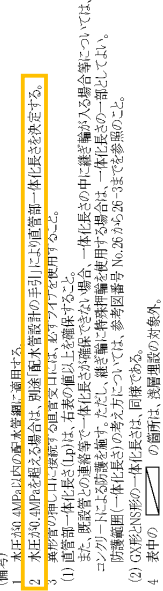 (備考)
1 水圧が0.4MPa以内の配水管網に適用する。
2 水圧が0.4MPaを超える場合は、別途「配水管設計の手引」により直管部一体化長さを決定する。
3 異形管の挿し口に接続する直管受口には、必ずライナを使用すること。
(1) 直管部一体化長さ(Lp)は、右表の値以上を確保すること。
また、既設管との連絡等で一体化長さが確保できない場合、一体化長さの中に継ぎ輪が入る場合等については、
コンクリートによる防護を施す。ただし、継ぎ輪に特殊押輪を使用する場合は、一体化長さの一部としてよい。
防護範囲(一体化長さ)の考え方については、参考図番号 No.26 から26-3までを参照のこと。
(2) GX形とNS形の一体化長さは、同様である。
4 表中の の箇所は、浅層埋設の対象外。